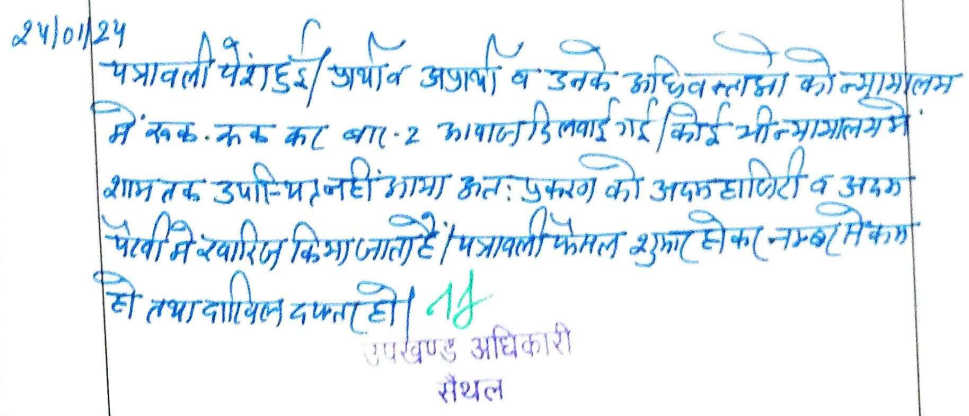 24/01/24
पत्रावली पेश हुई। प्रार्थी व अप्रार्थी व उनके अधिवक्ताओ को न्यायालय
मे रूक-रूक कर बार-2 आवाज दिलवाई गई। कोई भी न्यायालय में
शाम तक उपस्थित नहीं आया अतः प्रकरण को अदम हाजिरी व अदम
पैरवी मे खारिज किया जाता है। पत्रावली फैसल शुमार होकर नम्बर से कम
हो तथा दाखिल दफ्तर हो।
उपखण्ड अधिकारी
सैंथल